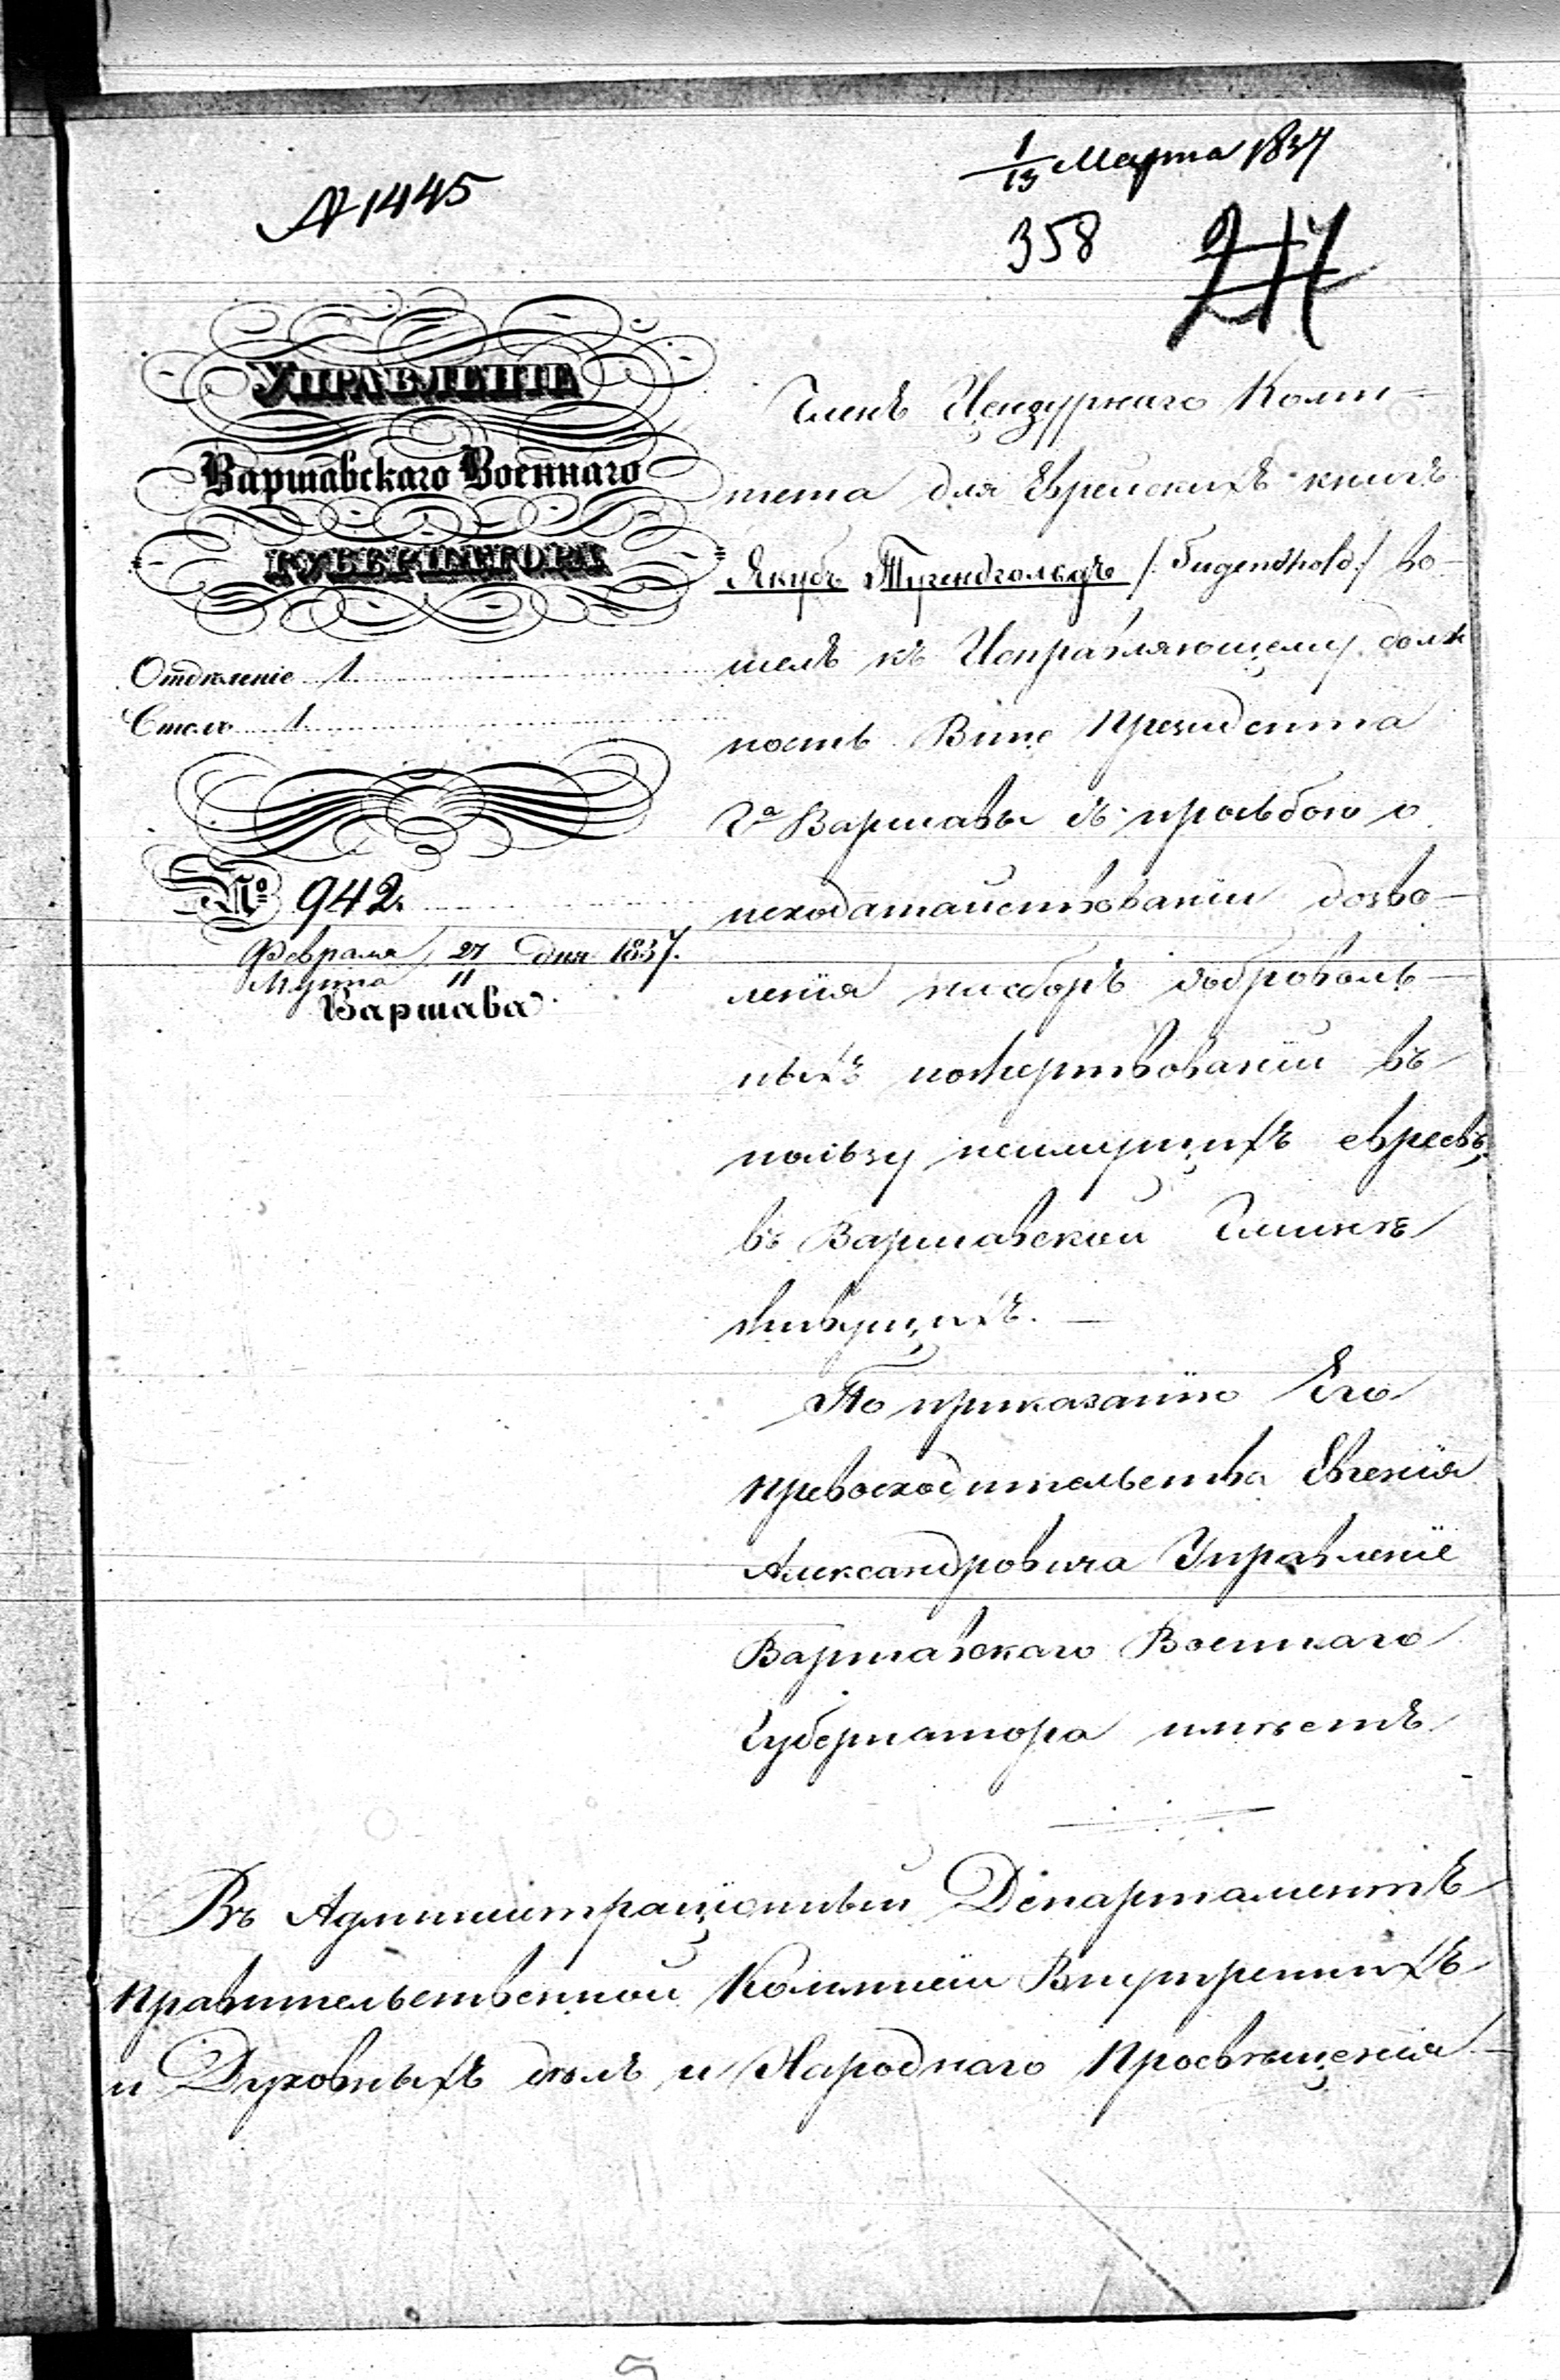 № 1445
1/13 Марта 1837
358
217
Управленіе
Варшавскаго Военнаго
Губернатора
Отдѣленіе 1
Столъ 1
№ 942.
Февраля 27 дня 1837.
Марта 11
Варшава
Членъ Цензурнаго Коми-
тета для Еврейскихъ книгъ
Якубъ Тугендгольдъ /:Tugendhold:/ во-
шелъ къ Исправляющему долж
ность Вице Президента
Га Варшавы съ просьбою о
исходатайствованіи дозво-
ленія на сборъ добровол-
ныхъ пожертвованій въ
пользу неимущихъ евреевъ,
въ Варшавской Гминѣ
живущихъ. —
По приказанію Его
Превосходительства Евгенія
Александровича Управленіе
Варшавскаго Военнаго
Губернатора имѣетъ
Въ Администраціонный Департаментъ
Правительственной Коммисіи Внутреннихъ
и Духовныхъ дѣлъ и Народнаго Просвѣщенія